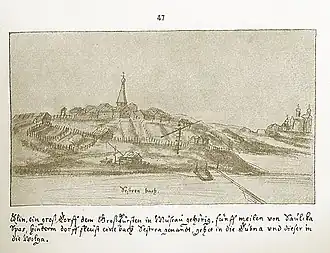 47
Sestrea bach.
Clin, ein groß Dorff dem Großfürsten in Muscau gehörig, fünff meilen von Saulika
Spas, hinterm dorff fleust eine bach Sestrea genandt, gehet in die Dubna und dieser in
die Wolga.